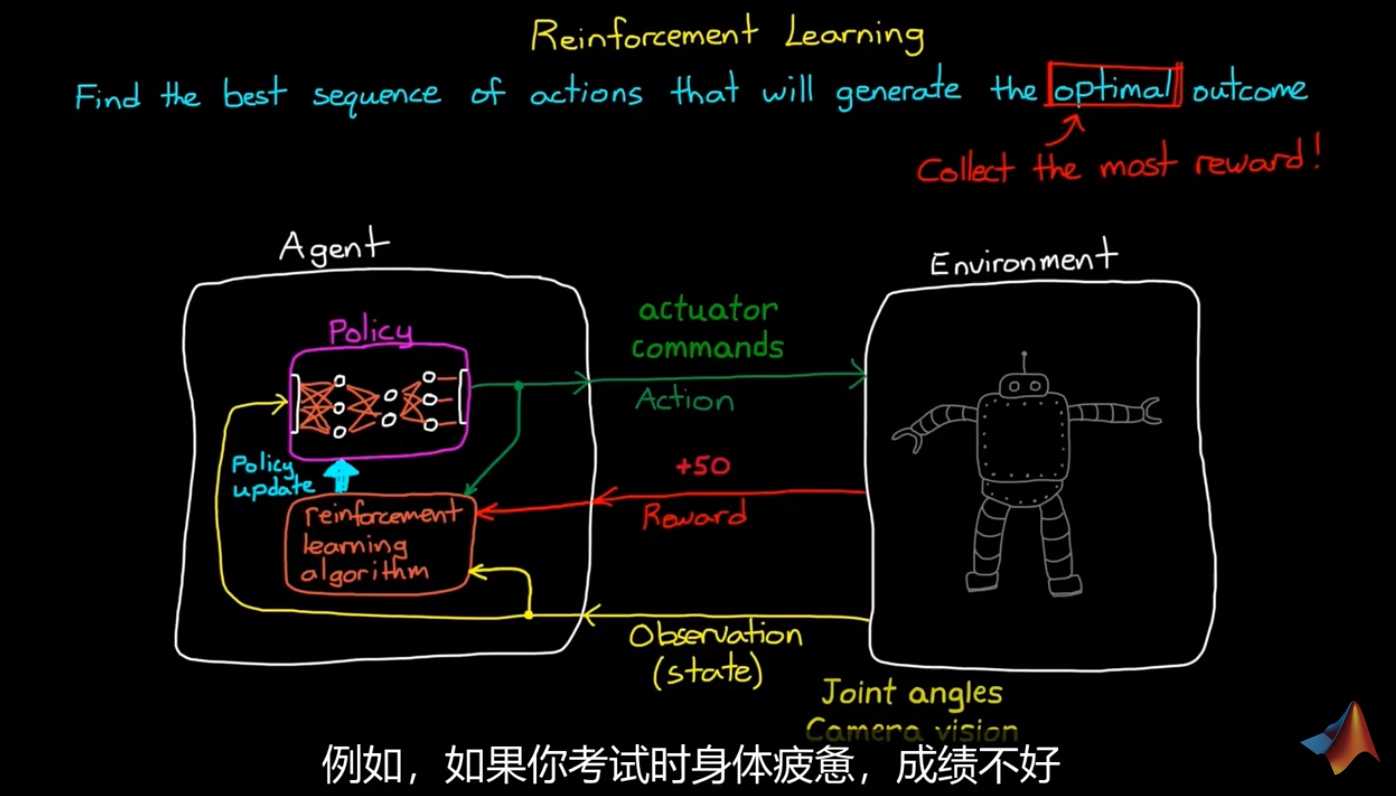 Reinforcement Learning
Find the best sequence of actions that will generate the optimal outcome
Collect the most reward!
Agent
Environment
Policy
actuator
commands
Action
Policy
update
+50
Reward
reinforcement
learning
algorithm
Observation
(state)
Joint angles
Camera vision
例如，如果你考试时身体疲惫，成绩不好